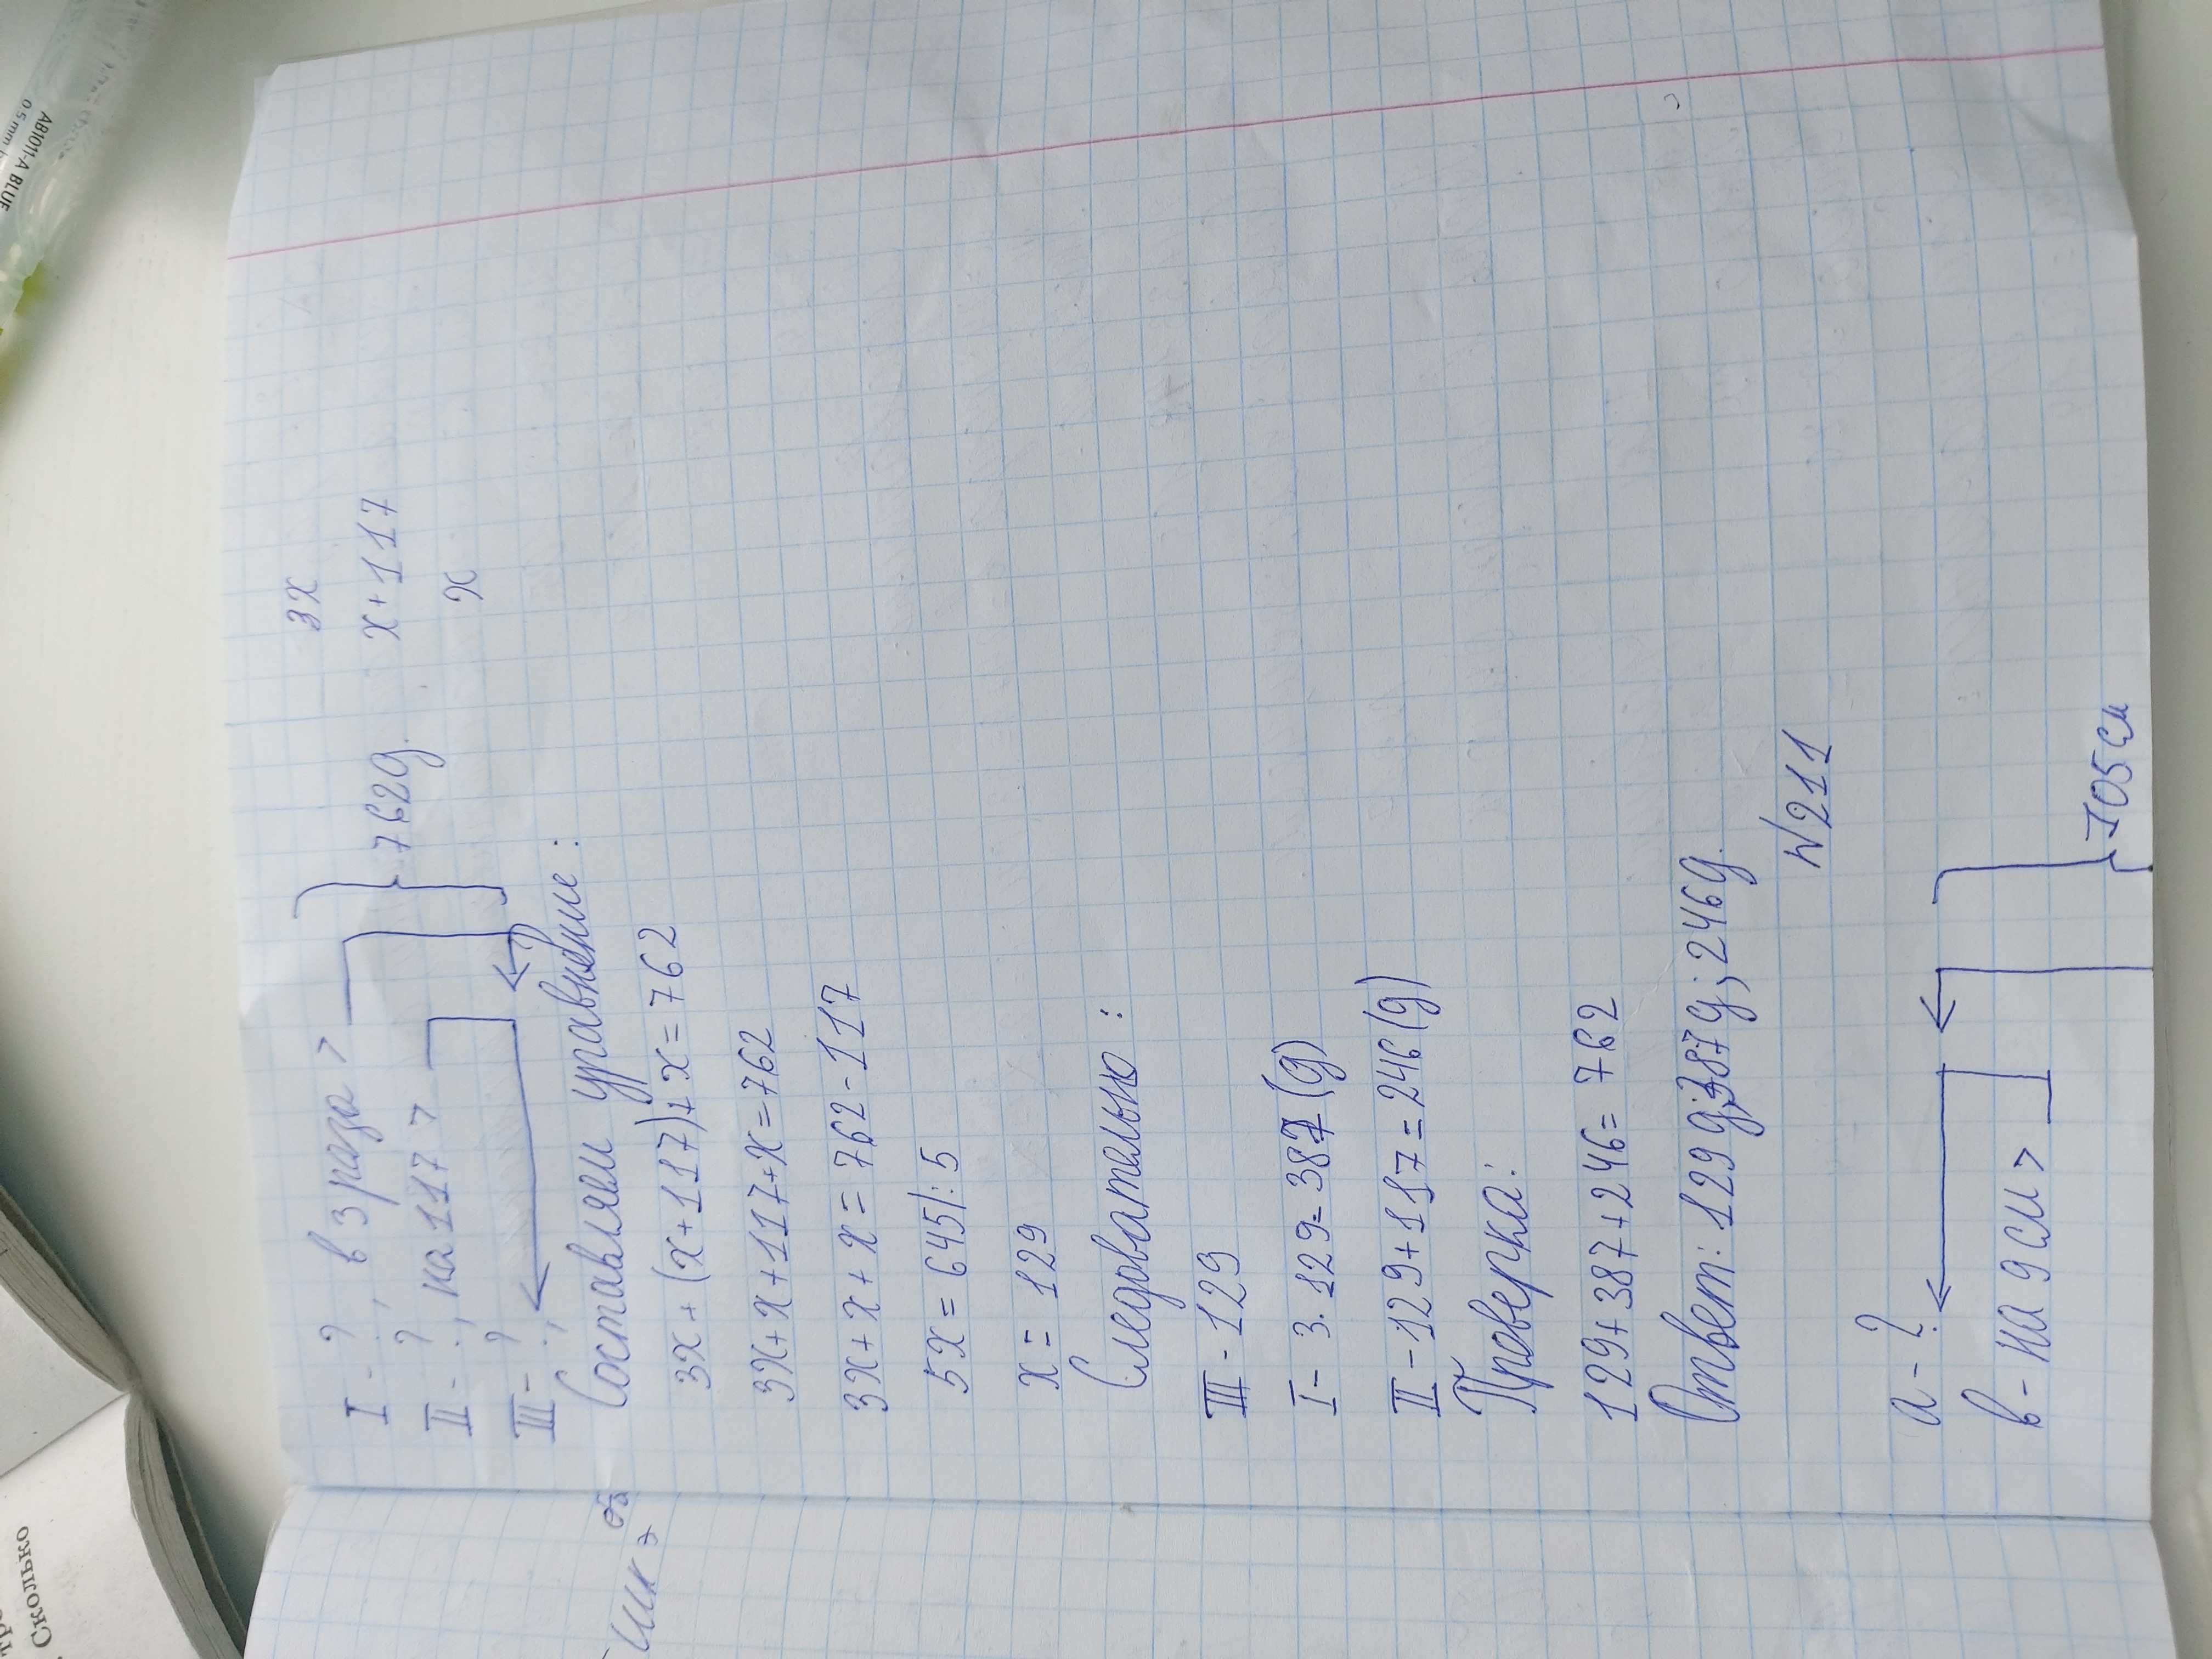 I - ?, в 3 раза >
3x
II - ?, на 117 >
762д.
x+117
III - ?,
x
Составляем уравнение:
3x+(x+117)+x=762
3x+x+117+x=762
3x+x+x=762-117
5x=645|:5
x=129
Следовательно:
III - 129
I - 3·129=387(д)
II - 129+117=246(д)
Проверка:
129+387+246=762
Ответ: 129д; 387д; 246д.
№211
a - ?
в - на 9см >
105см
AB1011-A BLUE
0.5mm
Сколько